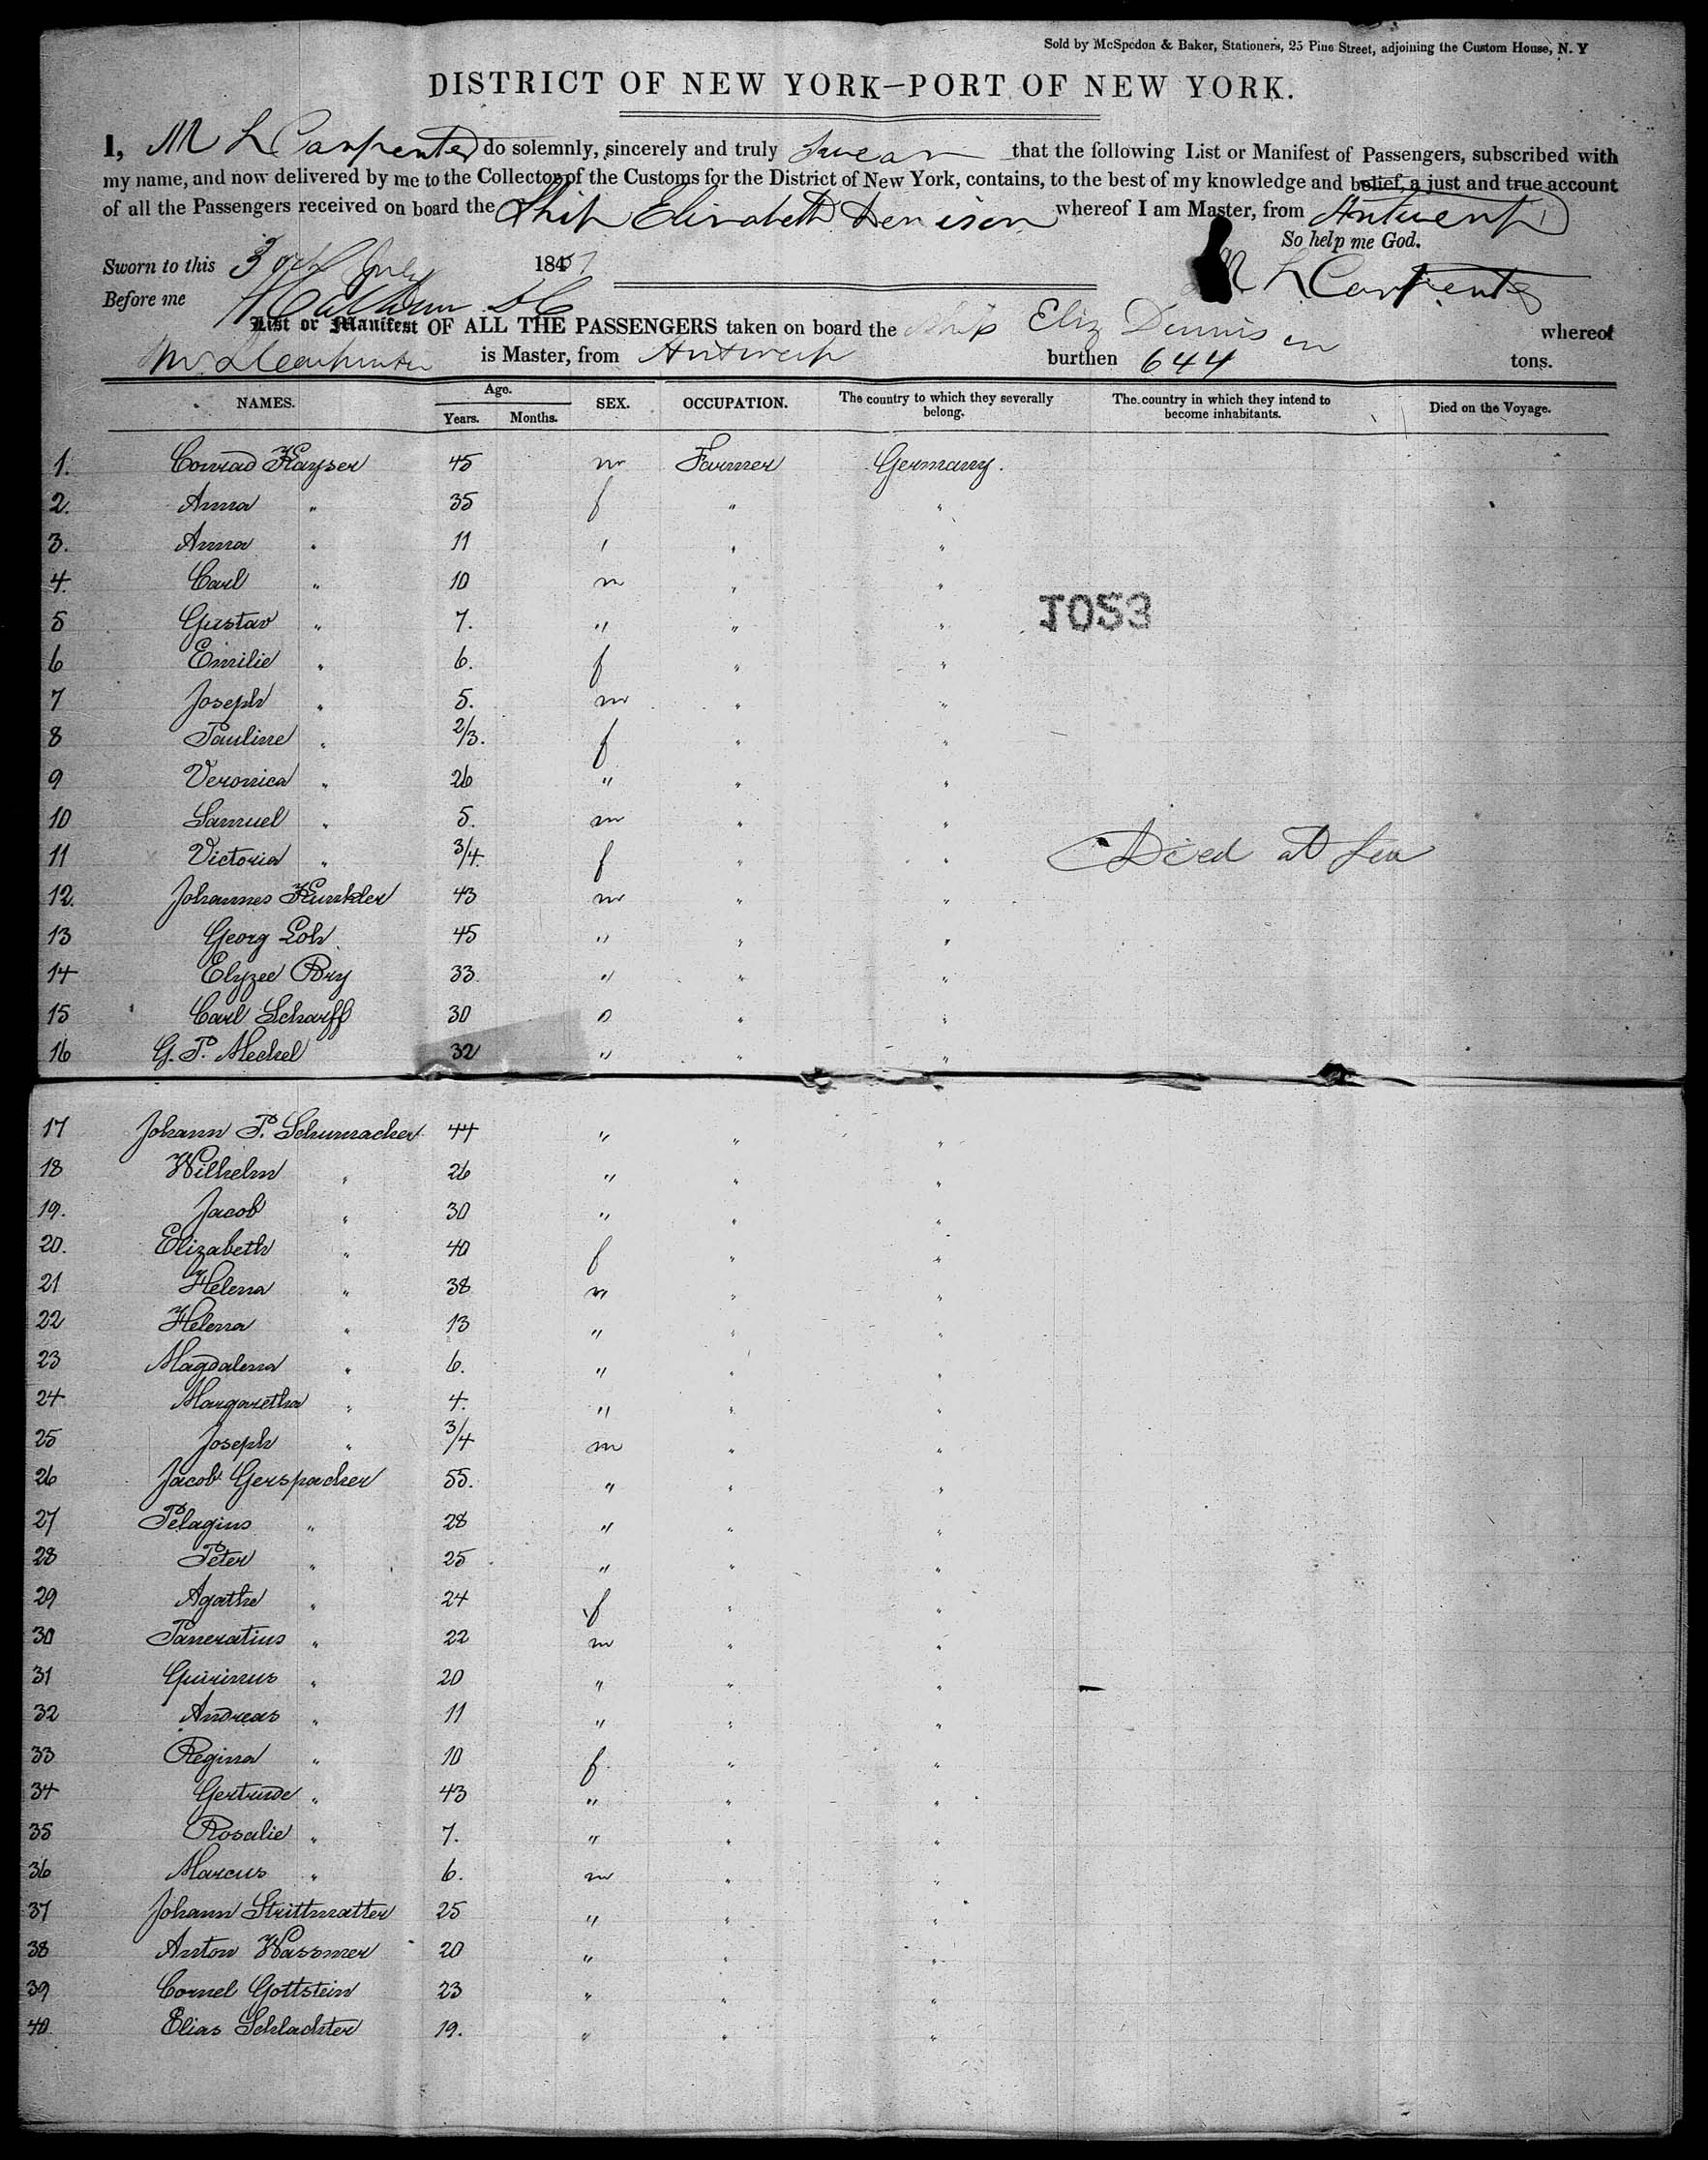 Sold by McSpedon & Baker, Stationers, 25 Pine Street, adjoining the Custom House, N. Y
DISTRICT OF NEW YORK—PORT OF NEW YORK.
I, M L Carpenter do solemnly, sincerely and truly swear that the following List or Manifest of Passengers, subscribed with
my name, and now delivered by me to the Collector of the Customs for the District of New York, contains, to the best of my knowledge and belief, a just and true account
of all the Passengers received on board the Ship Elizabeth Denison whereof I am Master, from Antwerp
So help me God.
Sworn to this July 184
M L Carpenter
Before me
List or Manifest OF ALL THE PASSENGERS taken on board the Ship Eliz Dennison whereof
M. L Carpenter is Master, from Antwerp burthen 644 tons.
NAMES. Age. Years. Months. SEX. OCCUPATION. The country to which they severally belong. The country in which they intend to become inhabitants. Died on the Voyage.
1. Conrad Kayser 45 m Farmer Germany.
2. Anna " 35 f " "
3. Anna " 11 " " "
4. Carl " 10 m " "
5 Gustav " 7. " " "
1053
6 Emilie " 6. f " "
7 Joseph " 5. m " "
8 Pauline " 2/3. f " "
9 Veronica " 26 " " "
10 Samuel " 5. m " "
11 Victoria " 3/4. f " " Died at Sea
12. Johannes Kunkler 43 m " "
13 Georg Loh 45 " " "
14 Elyzee Bry 33. " " "
15 Carl Scharff 30 " " "
16 G. P. Meckel 32 " " "
17 Johann P. Schumacher 44 " " "
18 Wilhelm " 26 " " "
19. Jacob " 30 " " "
20. Elizabeth " 40 f " "
21 Helena " 38 " " "
22 Helena " 13 " " "
23 Magdalena " 6. " " "
24 Margaretha " 4. " " "
25 Joseph " 3/4 m " "
26 Jacob Gerspacher 55. " " "
27 Pelagius " 28 " " "
28 Peter " 25 " " "
29 Agathe " 24 f " "
30 Pancratius " 22 m " "
31 Quirinus " 20 " " "
32 Andreas " 11 " " "
33 Regina " 10 f " "
34 Gertrude " 43 " " "
35 Rosalie " 7. " " "
36 Marcus " 6. m " "
37 Johann Strittmatter 25 " " "
38 Anton Wassmer 20 " " "
39 Cornel Gottstein 23 " " "
40 Elias Schlachter 19. " " "